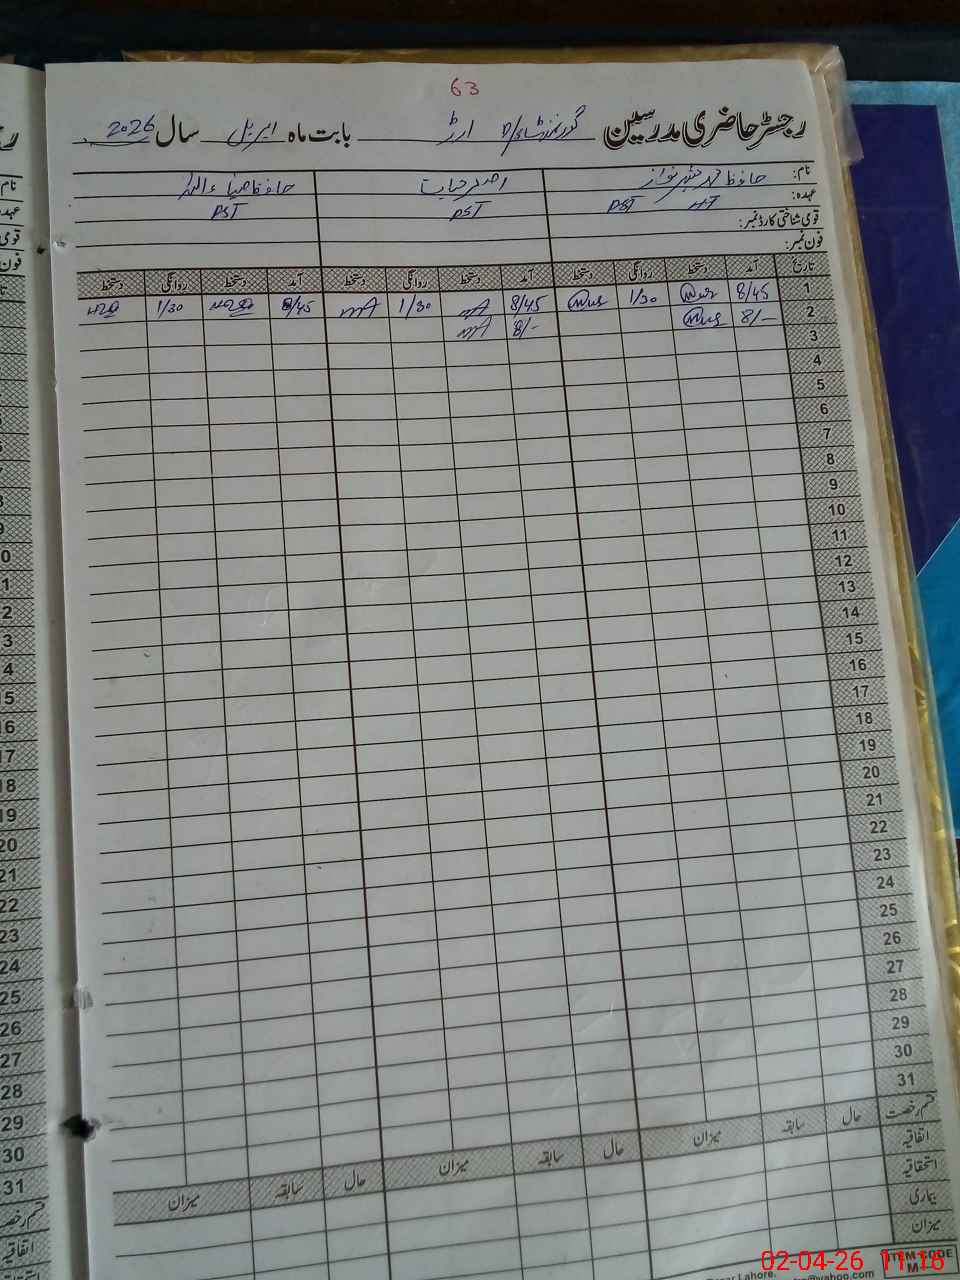 63
رجسٹر حاضری مدرسین بابت ماہ اپریل سال 2026
نام: حافظ محمد نواز حیات حافظ ضیاء اللہ
عہدہ: HT PST PST PST
قومی شناختی کارڈ نمبر:
فون نمبر:
تاریخ آمد دستخط روانگی دستخط آمد دستخط روانگی دستخط آمد دستخط روانگی دستخط
1 8/45 1/30 8/45 1/30 8/45 1/30
2 8/- 8/-
3
4
5
6
7
8
9
10
11
12
13
14
15
16
17
18
19
20
21
22
23
24
25
26
27
28
29
30
31
قسم رخصت حال سابقہ میزان حال سابقہ میزان حال سابقہ میزان
اتفاقیہ
استحقاقیہ
بیماری
میزان
ITEM CODE
Lahore.
@yahoo.com
02-04-26 11:16